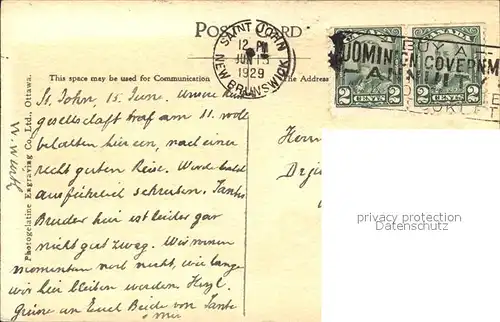 POST CARD
SAINT JOHN
12 PM
JUN 15
1929
NEW BRUNSWICK
CANADA
BUY A
DOMINION GOVERNM
ANNUIT
2 CENTS 2
2 CENTS 2
This space may be used for Communication
The Address
St. John, 15. June. Unsere
gesellschaft traf am 11. wohl
behalten hier ein, nach einer
recht guten Reise. Werde bald
ausführlich schreiben. Tantes
Bruder hier ist leider gar
nicht gut zweg. Wir wissen
momentan noch nicht, wie lange
wir hier bleiben werden. Herzl.
Grüsse an Euch Beide von Tante
Herrn
Photogelatine Engraving Co., Ltd., Ottawa.
privacy protection
www.oldthing.com